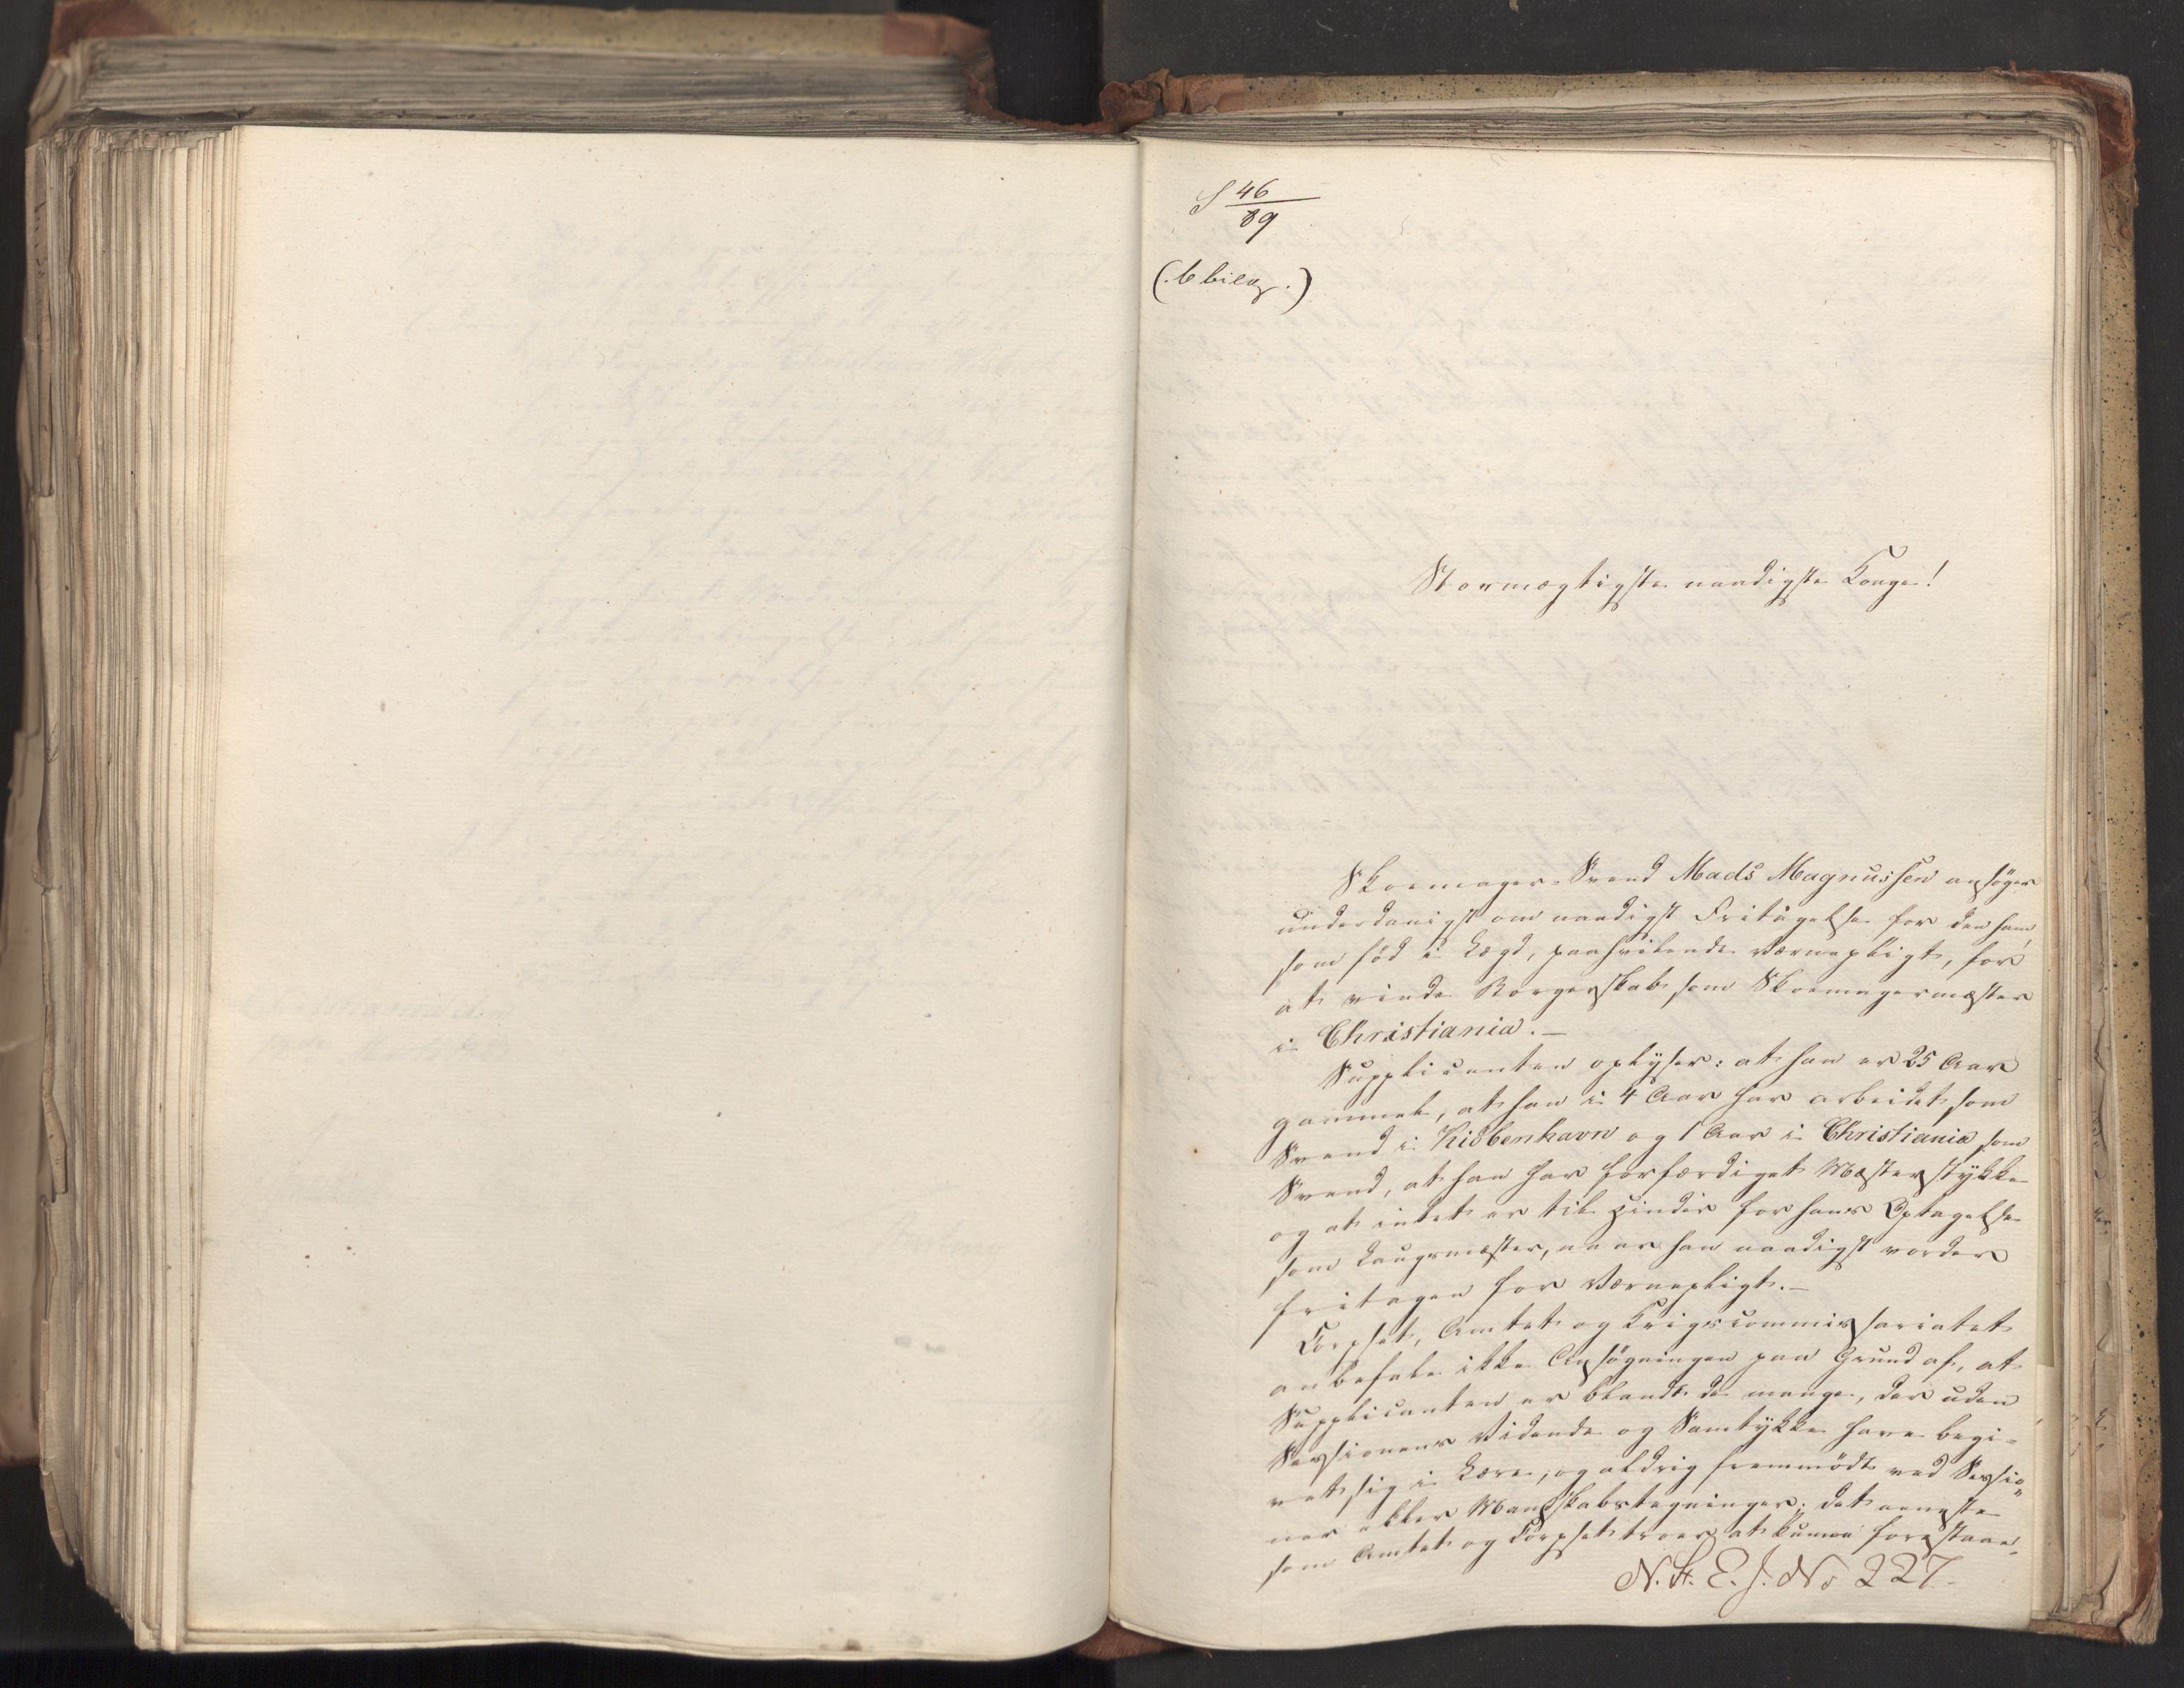 S 46/89
(6 bilag.)
Stormægtigste naadigste Konge!
Skoemager-Svend Mads Magnussen ansøger
underdanigst om naadigst Fritagelse for den ham
som föd i Lægd, paahvilende Værnepligt, for
at vinde Borgerskab som Skoemagermæster
i Christiania.—
Supplicanten oplyser: at han er 25 Aar
gammel, at han i 4 Aar har arbeidet som
Svend i Kiöbenhavn og 1 Aar i Christiania som
Svend, at han har forfærdiget Mæsterstykke
og at intet er til Hinder for hans Optagelse
som Laugsmæster, naar han naadigst vorder
fritagen for Værnepligt.—
Corpset, Amtet og Krigscommissariatet
anbefale ikke Ansøgningen paa Grund af, at
Supplicanten er blandt de mange, der uden
Sessionens Vidende og Samtykke have begi-
vet sig i Lære, og aldrig fremmödt ved Sessio-
ner eller Mandskabstegninger; det eeneste
som Amtet og Corpset troer at kunne forestaae
N. St. E. J. No 227.